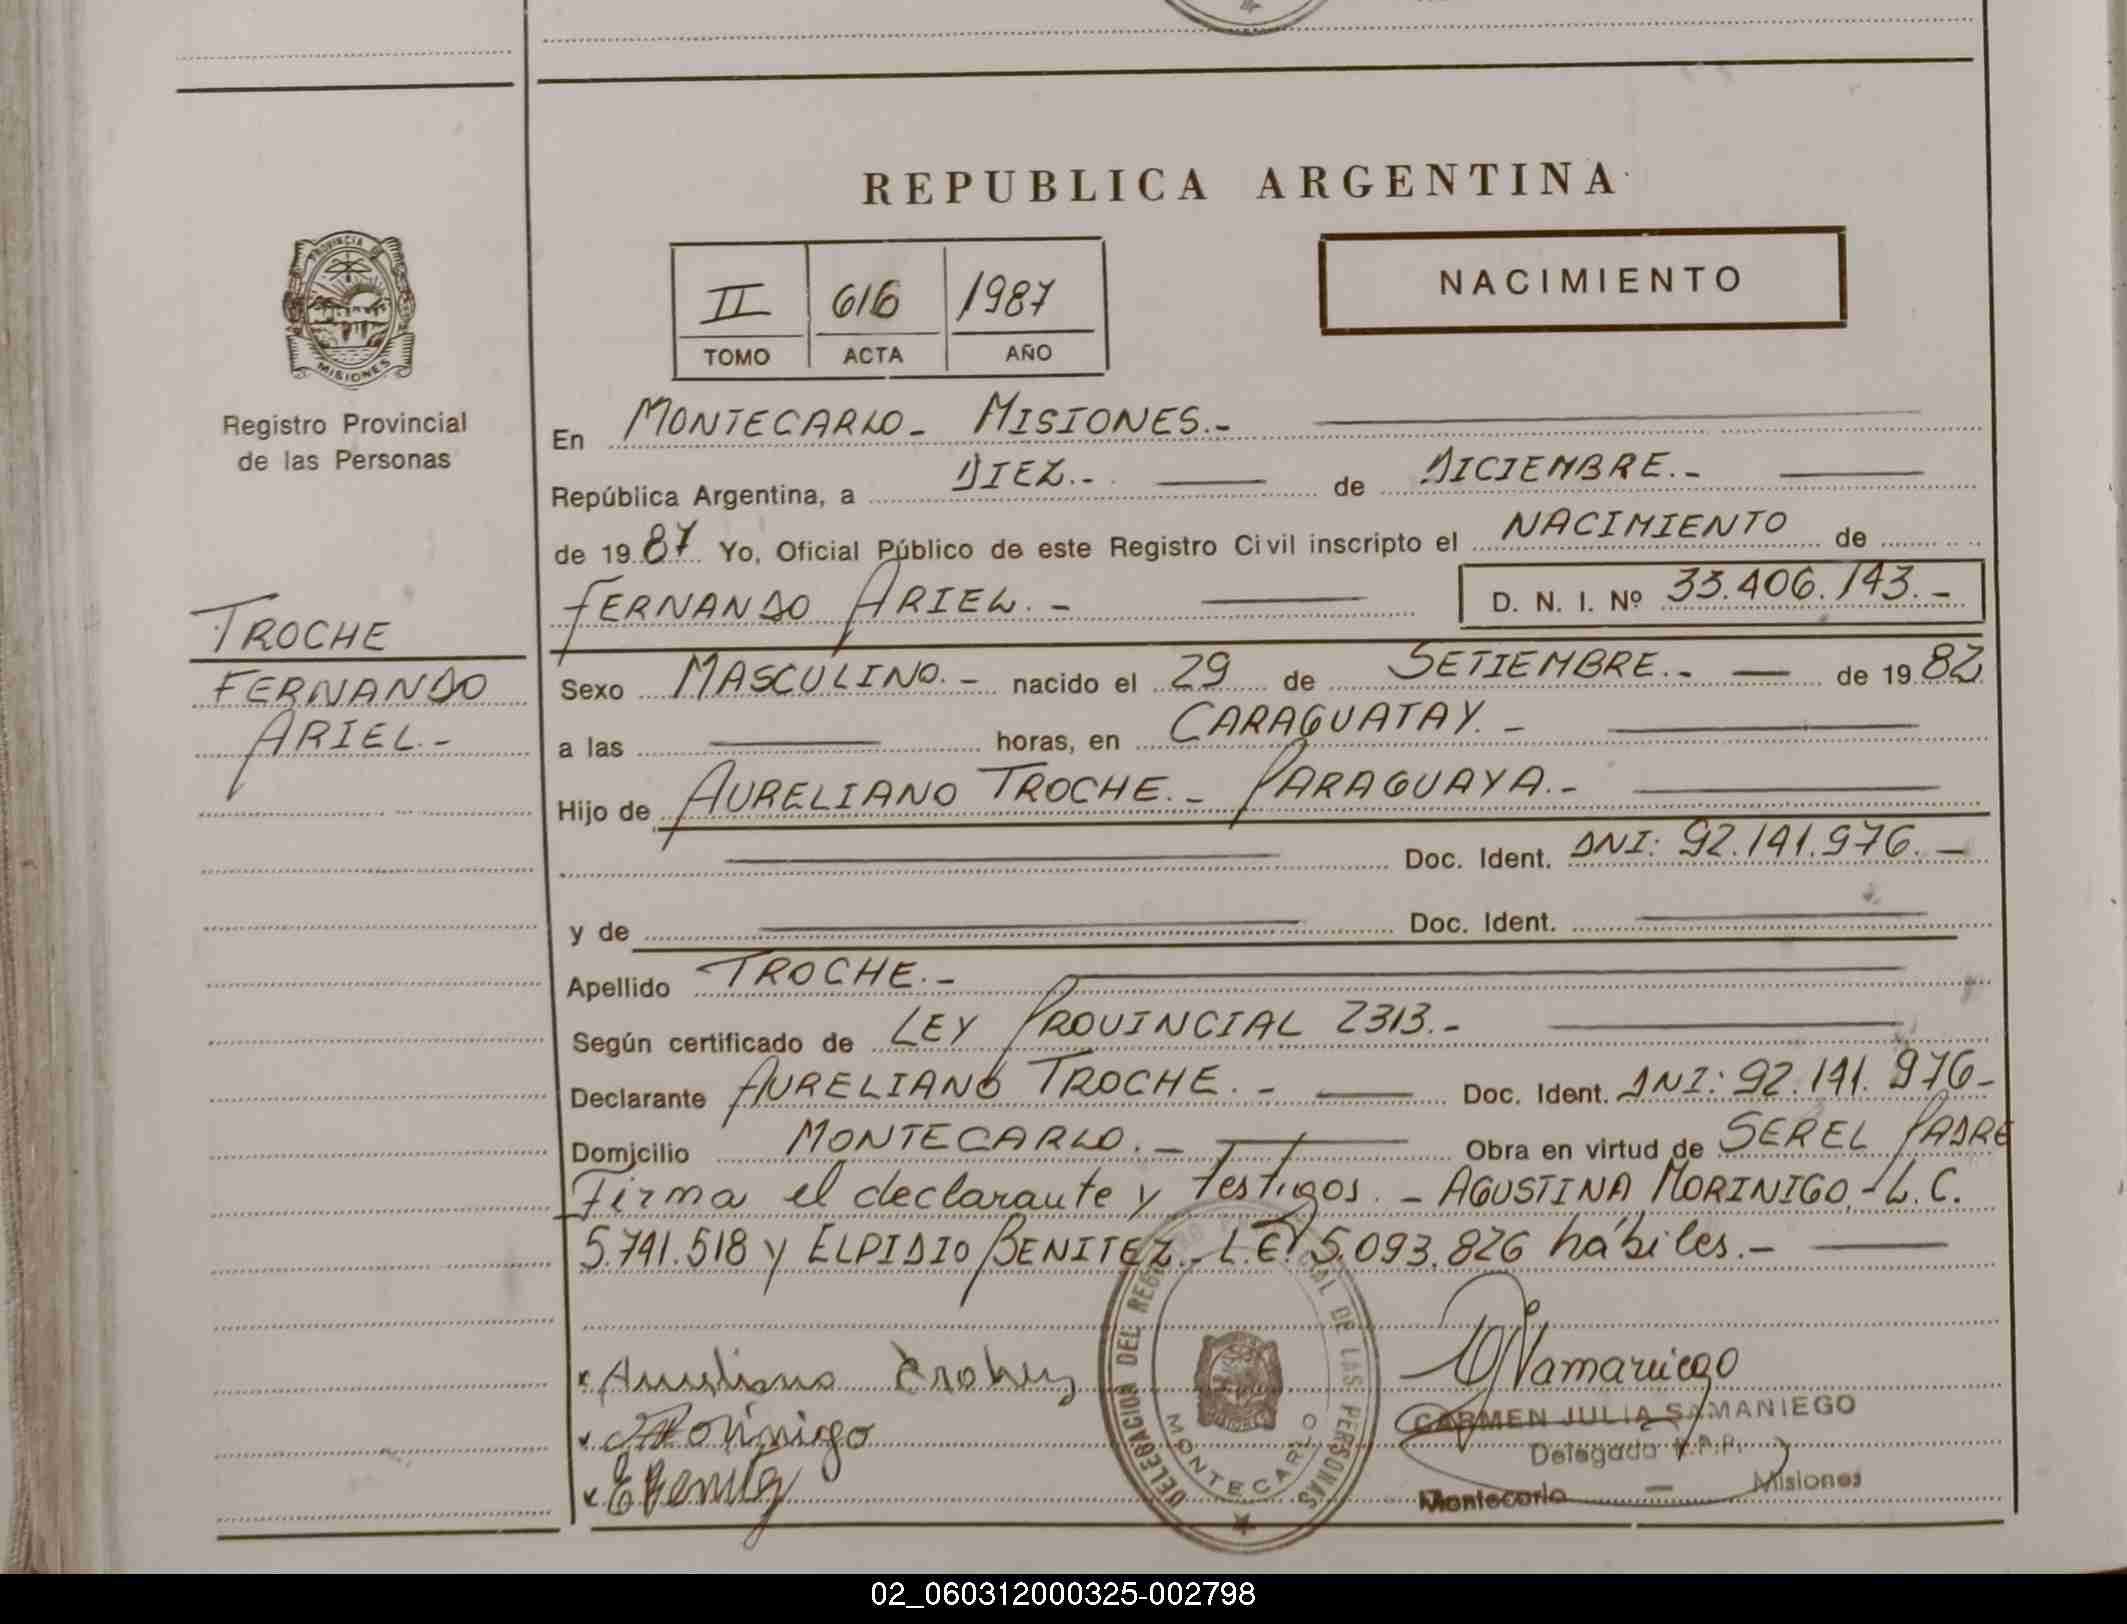 REPUBLICA ARGENTINA
II 616 1987
TOMO ACTA AÑO
NACIMIENTO
PROVINCIA DE
MISIONES
Registro Provincial
de las Personas
TROCHE
FERNANDO
ARIEL.-
En MONTECARLO - MISIONES.-
República Argentina, a DIEZ.- de DICIEMBRE.-
de 1987 Yo, Oficial Público de este Registro Civil inscripto el NACIMIENTO de
FERNANDO ARIEL.- D. N. I. Nº 33.406.143.-
Sexo MASCULINO.- nacido el 29 de SETIEMBRE.- de 1982
a las horas, en CARAGUATAY.-
Hijo de AURELIANO TROCHE.- PARAGUAYA.-
Doc. Ident. DNI: 92.141.976.-
y de Doc. Ident.
Apellido TROCHE.-
Según certificado de LEY PROVINCIAL 2313.-
Declarante AURELIANO TROCHE.- Doc. Ident. DNI: 92.141.976-
Domicilio MONTECARLO.- Obra en virtud de SER EL PADRE
Firma el declarante y testigos.- AGUSTINA MORINIGO - L.C.
5.741.518 y ELPIDIO BENITEZ.- L.E. 5.093.826 hábiles.-
Aureliano
Morinigo
E Benitez
DELEGACION DEL REGISTRO PROVINCIAL DE LAS PERSONAS
MONTECARLO
CARMEN JULIA SAMANIEGO
Delegada R.P.P.
Montecarlo - Misiones
02_060312000325-002798